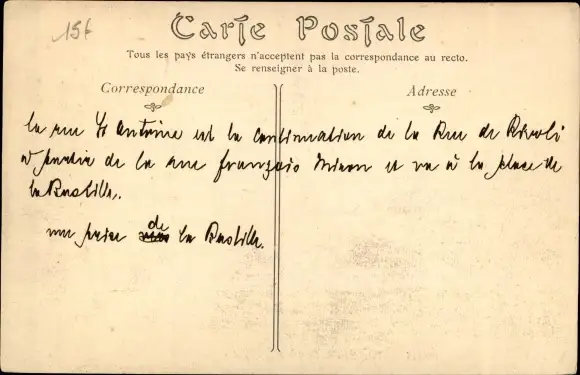 15f
Carte Postale
Tous les pays étrangers n'acceptent pas la correspondance au recto.
Se renseigner à la poste.
Correspondance
Adresse
la rue St Antoine est la continuation de la Rue de Rivoli
à partir de la rue françois Miron et va à la place de
la Bastille.
vue prise de la Bastille.